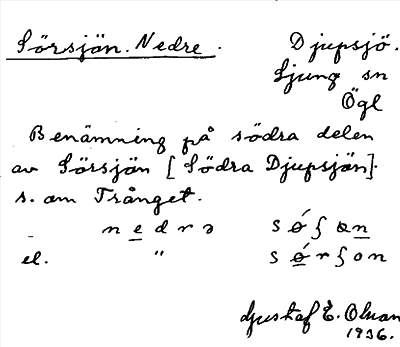 Sörsjön. Nedre. Djupsjö.
Ljung sn
Ögl
Benämning på södra delen
av Sörsjön [Södra Djupsjön].
s. om Trånget.
Gustaf E. Olson
1936.